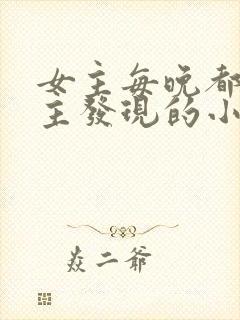 女主每晚都
主發現的小
焱二爺